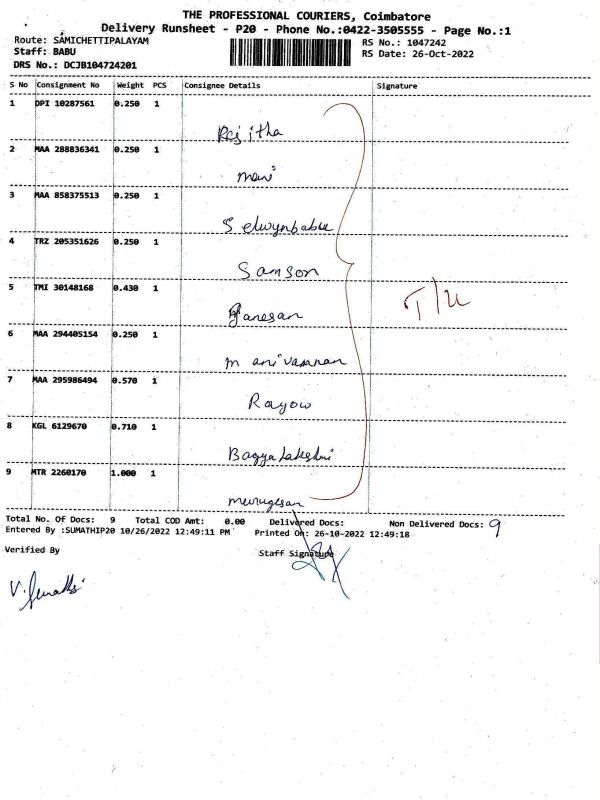 THE PROFESSIONAL COURIERS, Coimbatore
Delivery Runsheet - P20 - Phone No.:0422-3505555 - Page No.:1
Route: SAMICHETTIPALAYAM RS No.: 1047242
Staff: BABU RS Date: 26-Oct-2022
DRS No.: DCJB104724201
S No Consignment No Weight PCS Consignee Details Signature
1 DPI 10287561 0.250 1
Rajitha
2 MAA 288836341 0.250 1
mani
3 MAA 858375513 0.250 1
Selwynbabu
4 TRZ 205351626 0.250 1
Samson
5 TMI 30148168 0.430 1
Ganesan
6 MAA 294405154 0.250 1
manivannan
7 MAA 295986494 0.570 1
8 KGL 6129670 0.710 1
Bagyalakshmi
9 MTR 2260170 1.000 1
murugesan
Total No. Of Docs: 9 Total COD Amt: 0.00 Delivered Docs: Non Delivered Docs: 9
Entered By :SUMATHIP20 10/26/2022 12:49:11 PM Printed On: 26-10-2022 12:49:18
Verified By Staff Signature